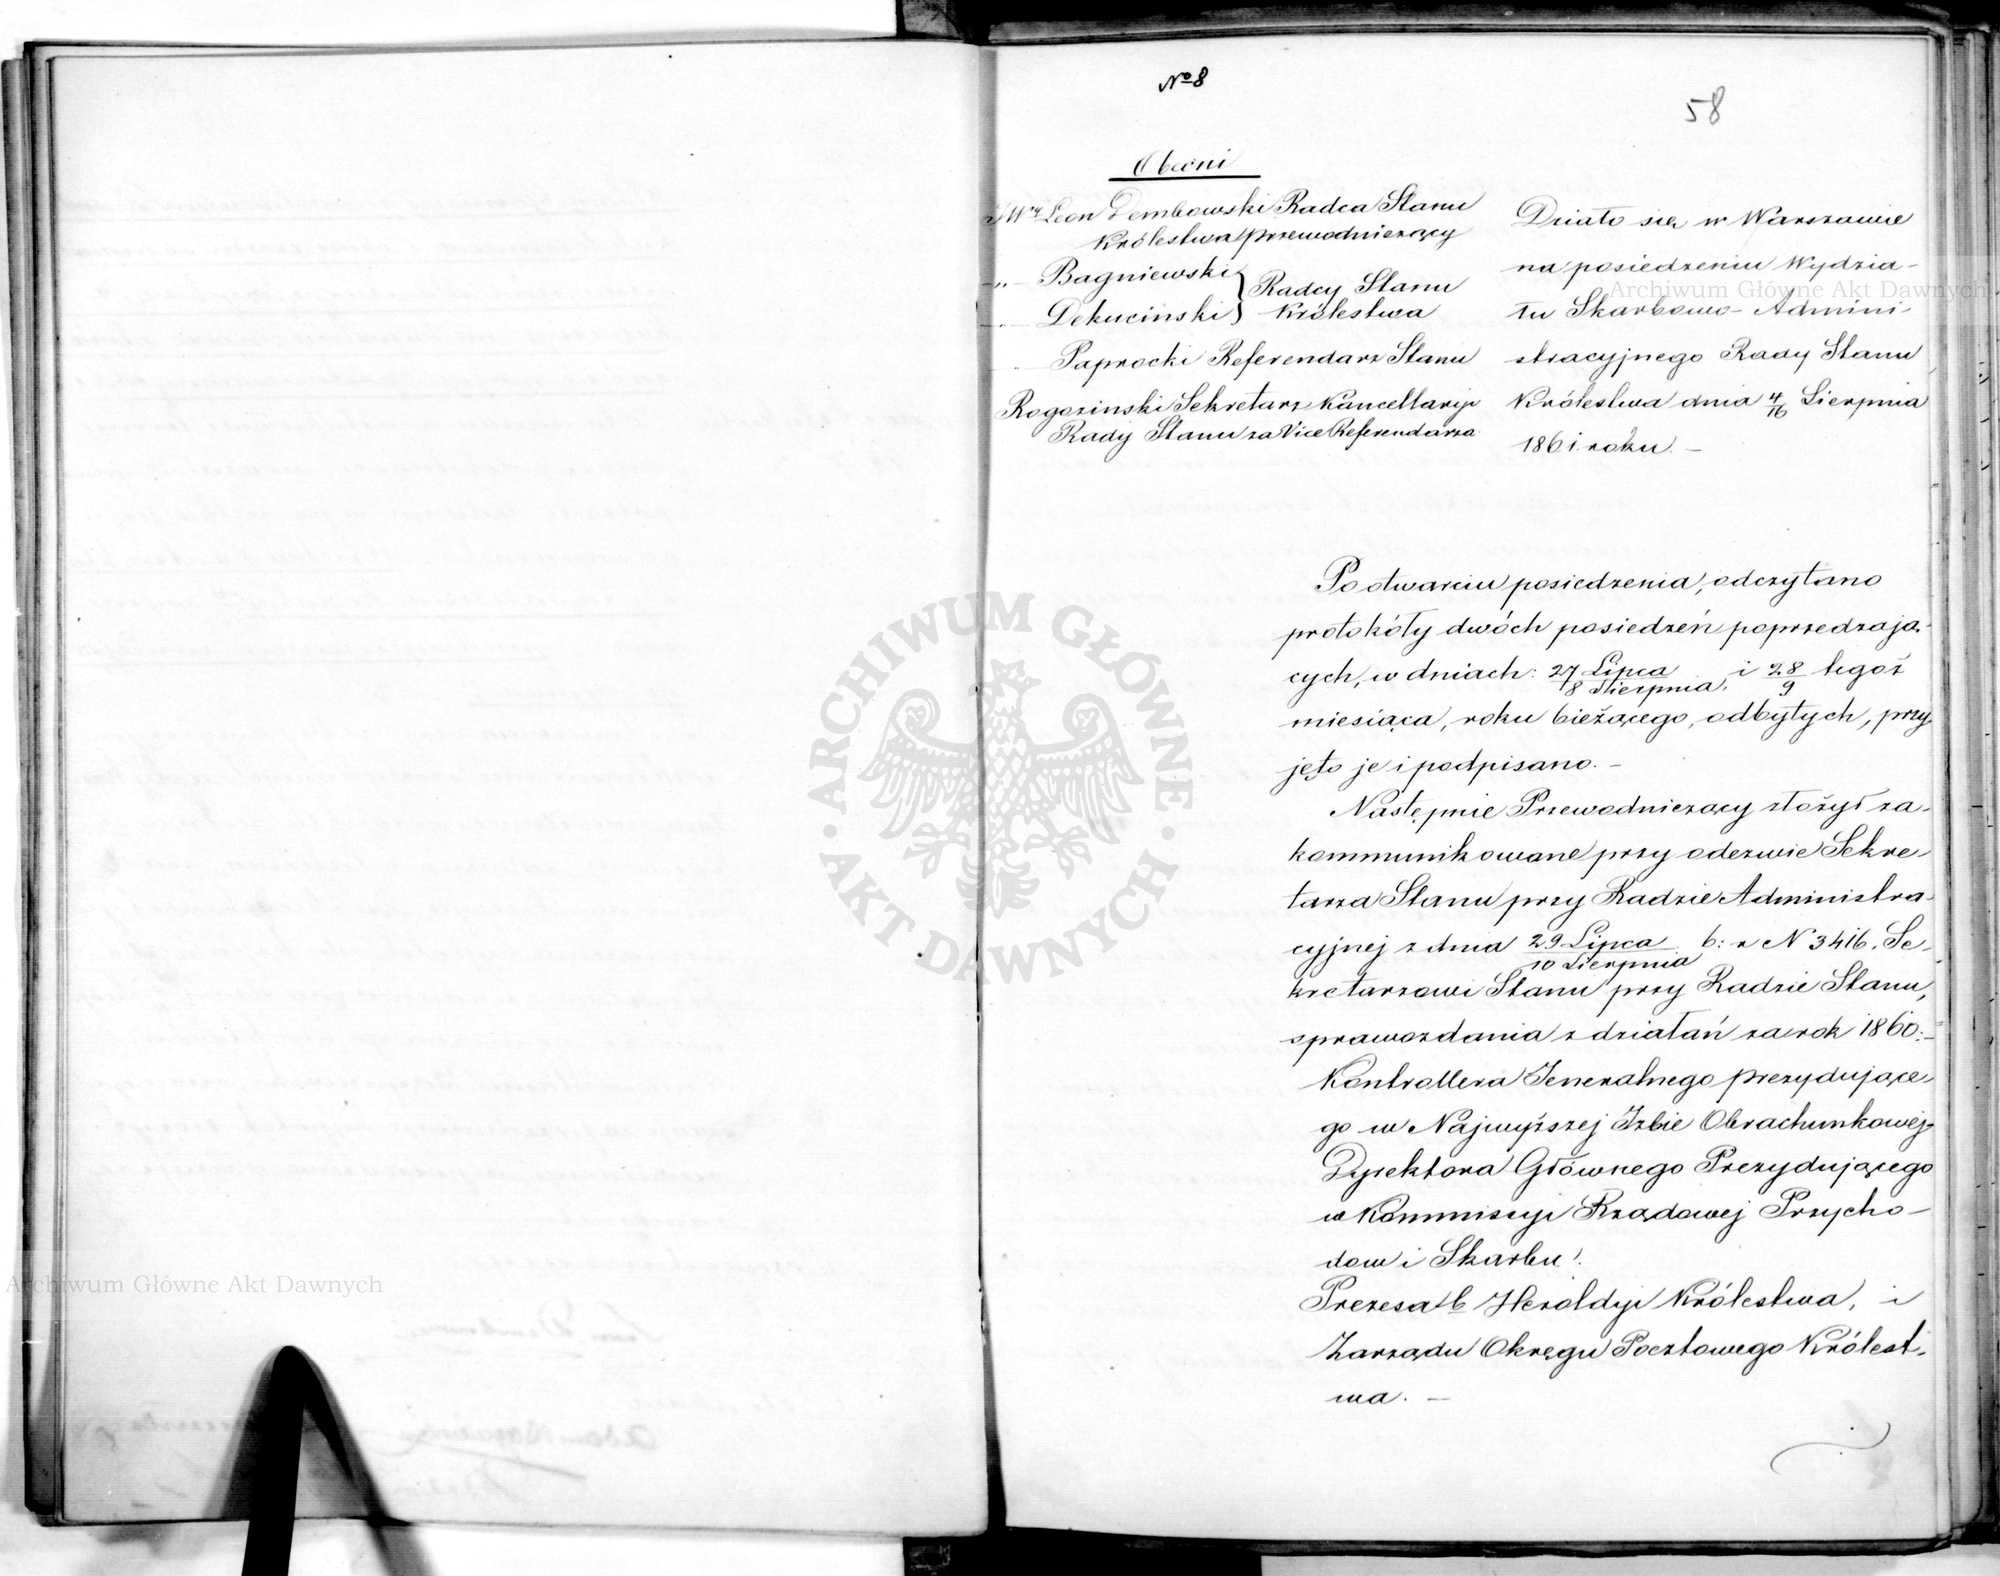 № 8
58
Obecni
JWny Leon Dembowski Radca Stanu
Królestwa przewodniczący
„ Bagniewski } Radcy Stanu
„ Dekucinski } Królestwa
Paprocki Referendarz Stanu
Rogozinski Sekretarz Kancellaryi
Rady Stanu za Vice Referendarza
Działo się w Warszawie
na posiedzeniu Wydzia-
łu Skarbowo-Admini-
stracyjnego Rady Stanu
Królestwa dnia 4/16 Sierpnia
1861 roku. –
Po otwarciu posiedzenia, odczytano
protokóły dwóch posiedzeń poprzedzają-
cych, w dniach: 27 Lipca/8 Sierpnia, i 28/9 tegoż
miesiąca, roku bieżącego, odbytych, przy-
jęto je i podpisano. –
Następnie Przewodniczący złożył za-
kommunikowane przy odezwie Sekre-
tarza Stanu przy Radzie Administra-
cyjnej z dnia 29 Lipca/10 Sierpnia b: r N 3416. Se-
kretarzowi Stanu przy Radzie Stanu,
sprawozdania z działań za rok 1860: –
Kontrollera Jeneralnego prezydujące-
go w Najwyższej Izbie Obrachunkowej
Dyrektora Głównego Prezydującego
w Kommissyi Rządowej Przycho-
dow i Skarbu.
Prezesa b Heroldyi Królestwa, i
Zarządu Okręgu Pocztowego Królest-
wa. –
ARCHIWUM GŁÓWNE
AKT DAWNYCH
Archiwum Główne Akt Dawnych
Archiwum Główne Akt Dawnych